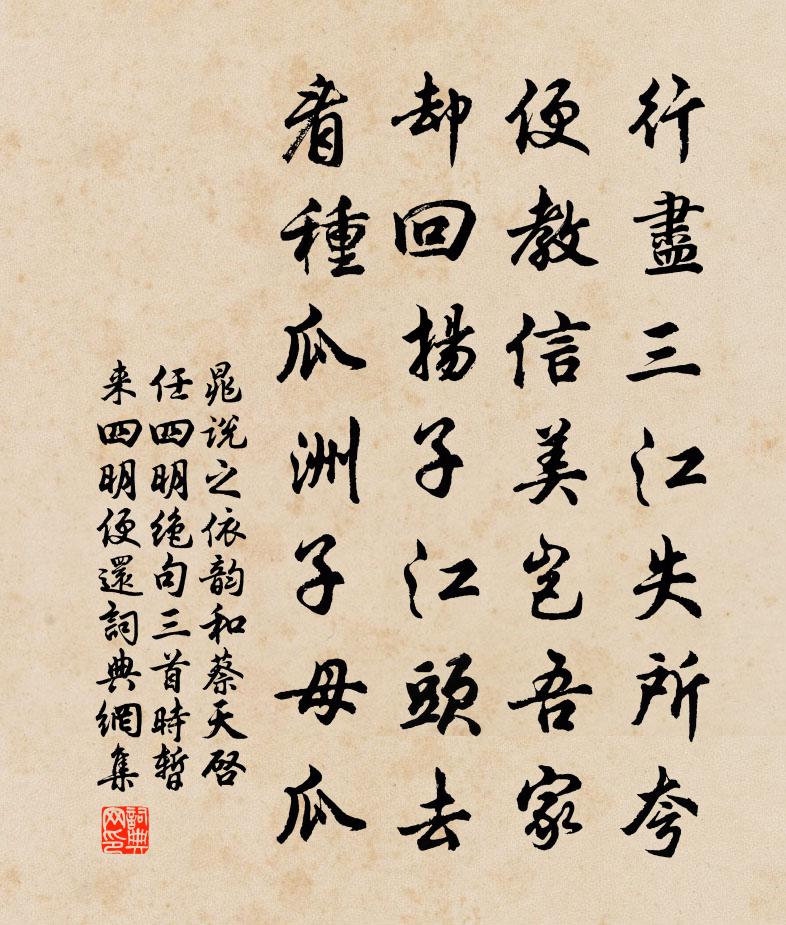 行盡三江失所夸
便教信美豈吾家
却回揚子江頭去
看種瓜洲子母瓜
晁说之依韵和蔡天啓
任四明绝句三首時暫
来四明便還詞典網集
詞典
网印